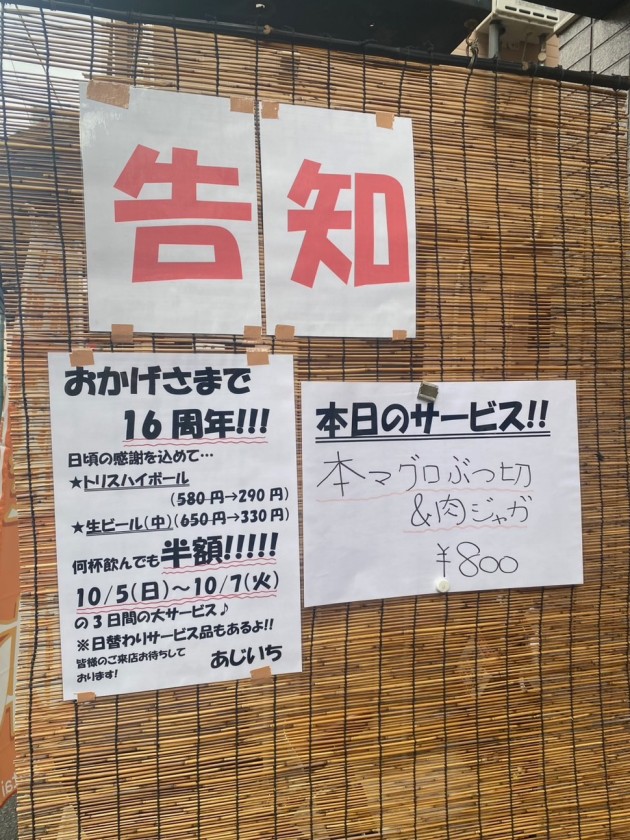 告知
おかげさまで
16周年!!!
日頃の感謝を込めて…
★トリスハイボール
(580円→290円)
★生ビール(中)(650円→330円)
何杯飲んでも半額!!!!!
10/5(日)~10/7(火)
の3日間の大サービス♪
※日替わりサービス品もあるよ!!
皆様のご来店お待ちして
おります!
あじいち
本日のサービス!!
本マグロぶつ切
&肉ジャガ
¥800